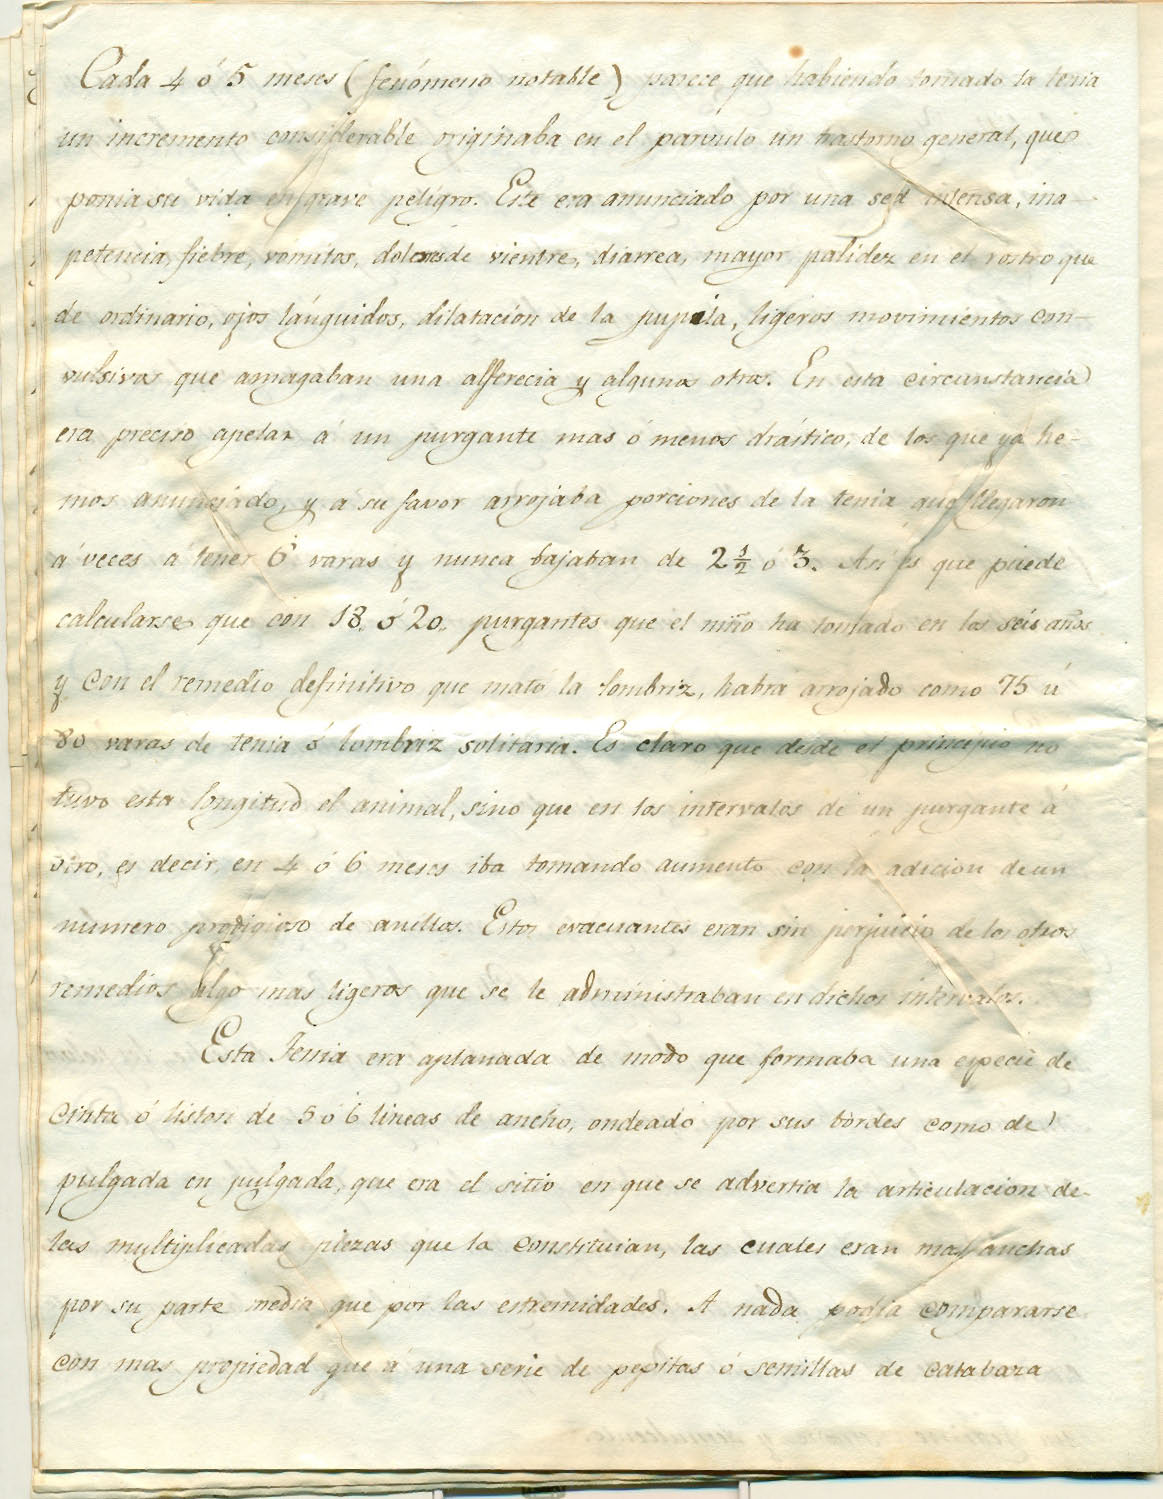 Cada 4 ó 5 meses (fenómeno notable) parece que habiendo tomado la tenia
un incremento considerable originaba en el párvulo un trastorno general, que
ponia su vida en grave peligro. Este era anunciado por una sed intensa, ina-
petencia, fiebre, vomitos, dolores de vientre, diarrea, mayor palidez en el rostro que
de ordinario, ojos lánguidos, dilatacion de la pupila, ligeros movimientos con-
vulsivos que amagaban una alferecia y algunos otros. En esta circunstancia
era preciso apelar á un purgante mas ó menos drástico, de los que ya he-
mos anunciado, y a su favor arrojaba porciones de la tenia que llegaron
á veces á tener 6 varas y nunca bajaban de 2 1/2 ó 3. Asi es que puede
calcularse que con 18. ó 20. purgantes que el niño ha tomado en los seis años
y con el remedio definitivo que mató la lombriz, habrá arrojado como 75 ú
80 varas de tenia ó lombriz solitaria. Es claro que desde el principio no
tuvo esta longitud el animal, sino que en los intervalos de un purgante á
otro, es decir, en 4 ó 6 meses iba tomando aumento con la adicion de un
numero prodigioso de anillos. Estos evacuantes eran sin perjuicio de los otros
remedios algo mas ligeros que se le administraban en dichos intervalos.
Esta Tenia era aplanada de modo que formaba una especie de
cinta ó liston de 5 ó 6 lineas de ancho, ondeado por sus bordes como de
pulgada en pulgada, que era el sitio en que se advertia la articulacion de
las multiplicadas piezas que la constituian, las cuales eran mas anchas
por su parte media que por las estremidades. A nada podia compararse
con mas propiedad que á una serie de pepitas ó semillas de calabaza